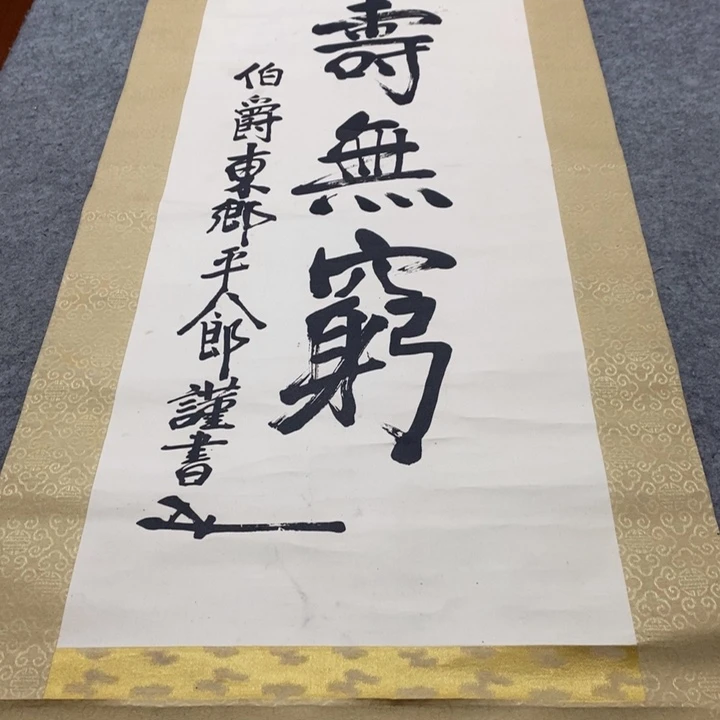 壽無窮
伯爵東郷平八郎謹書